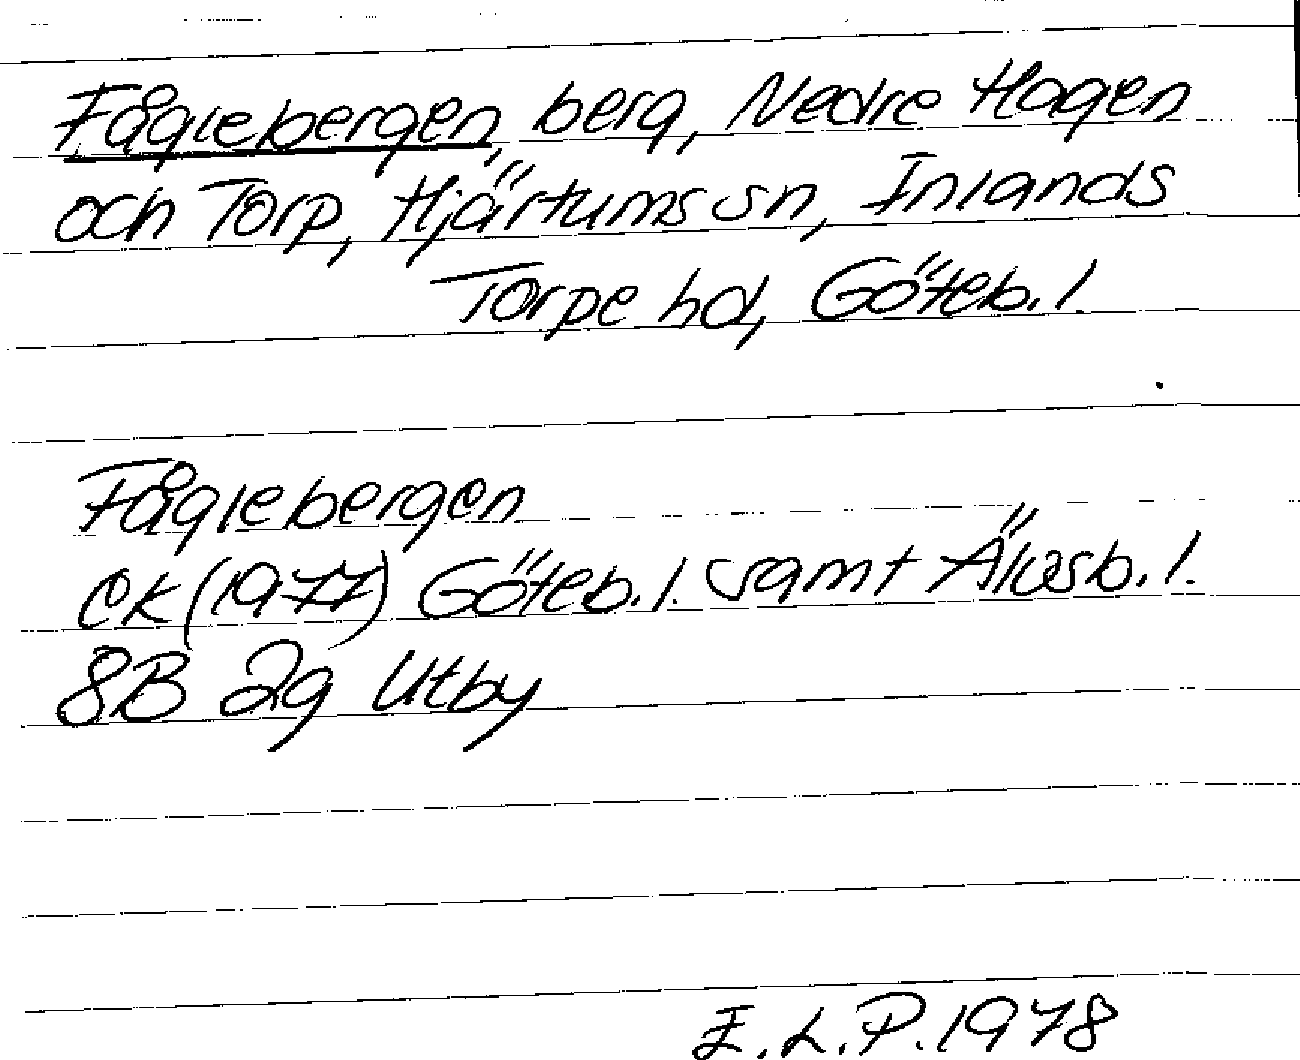 Fåglebergen, berg, Nedre Hagen
och Torp, Hjärtums sn, Inlands
Torpe hd, Göteb. l.
Fåglebergen
ek (1977) Göteb. l. samt Älvsb. l.
8B 2g Utby
E. L. P. 1978